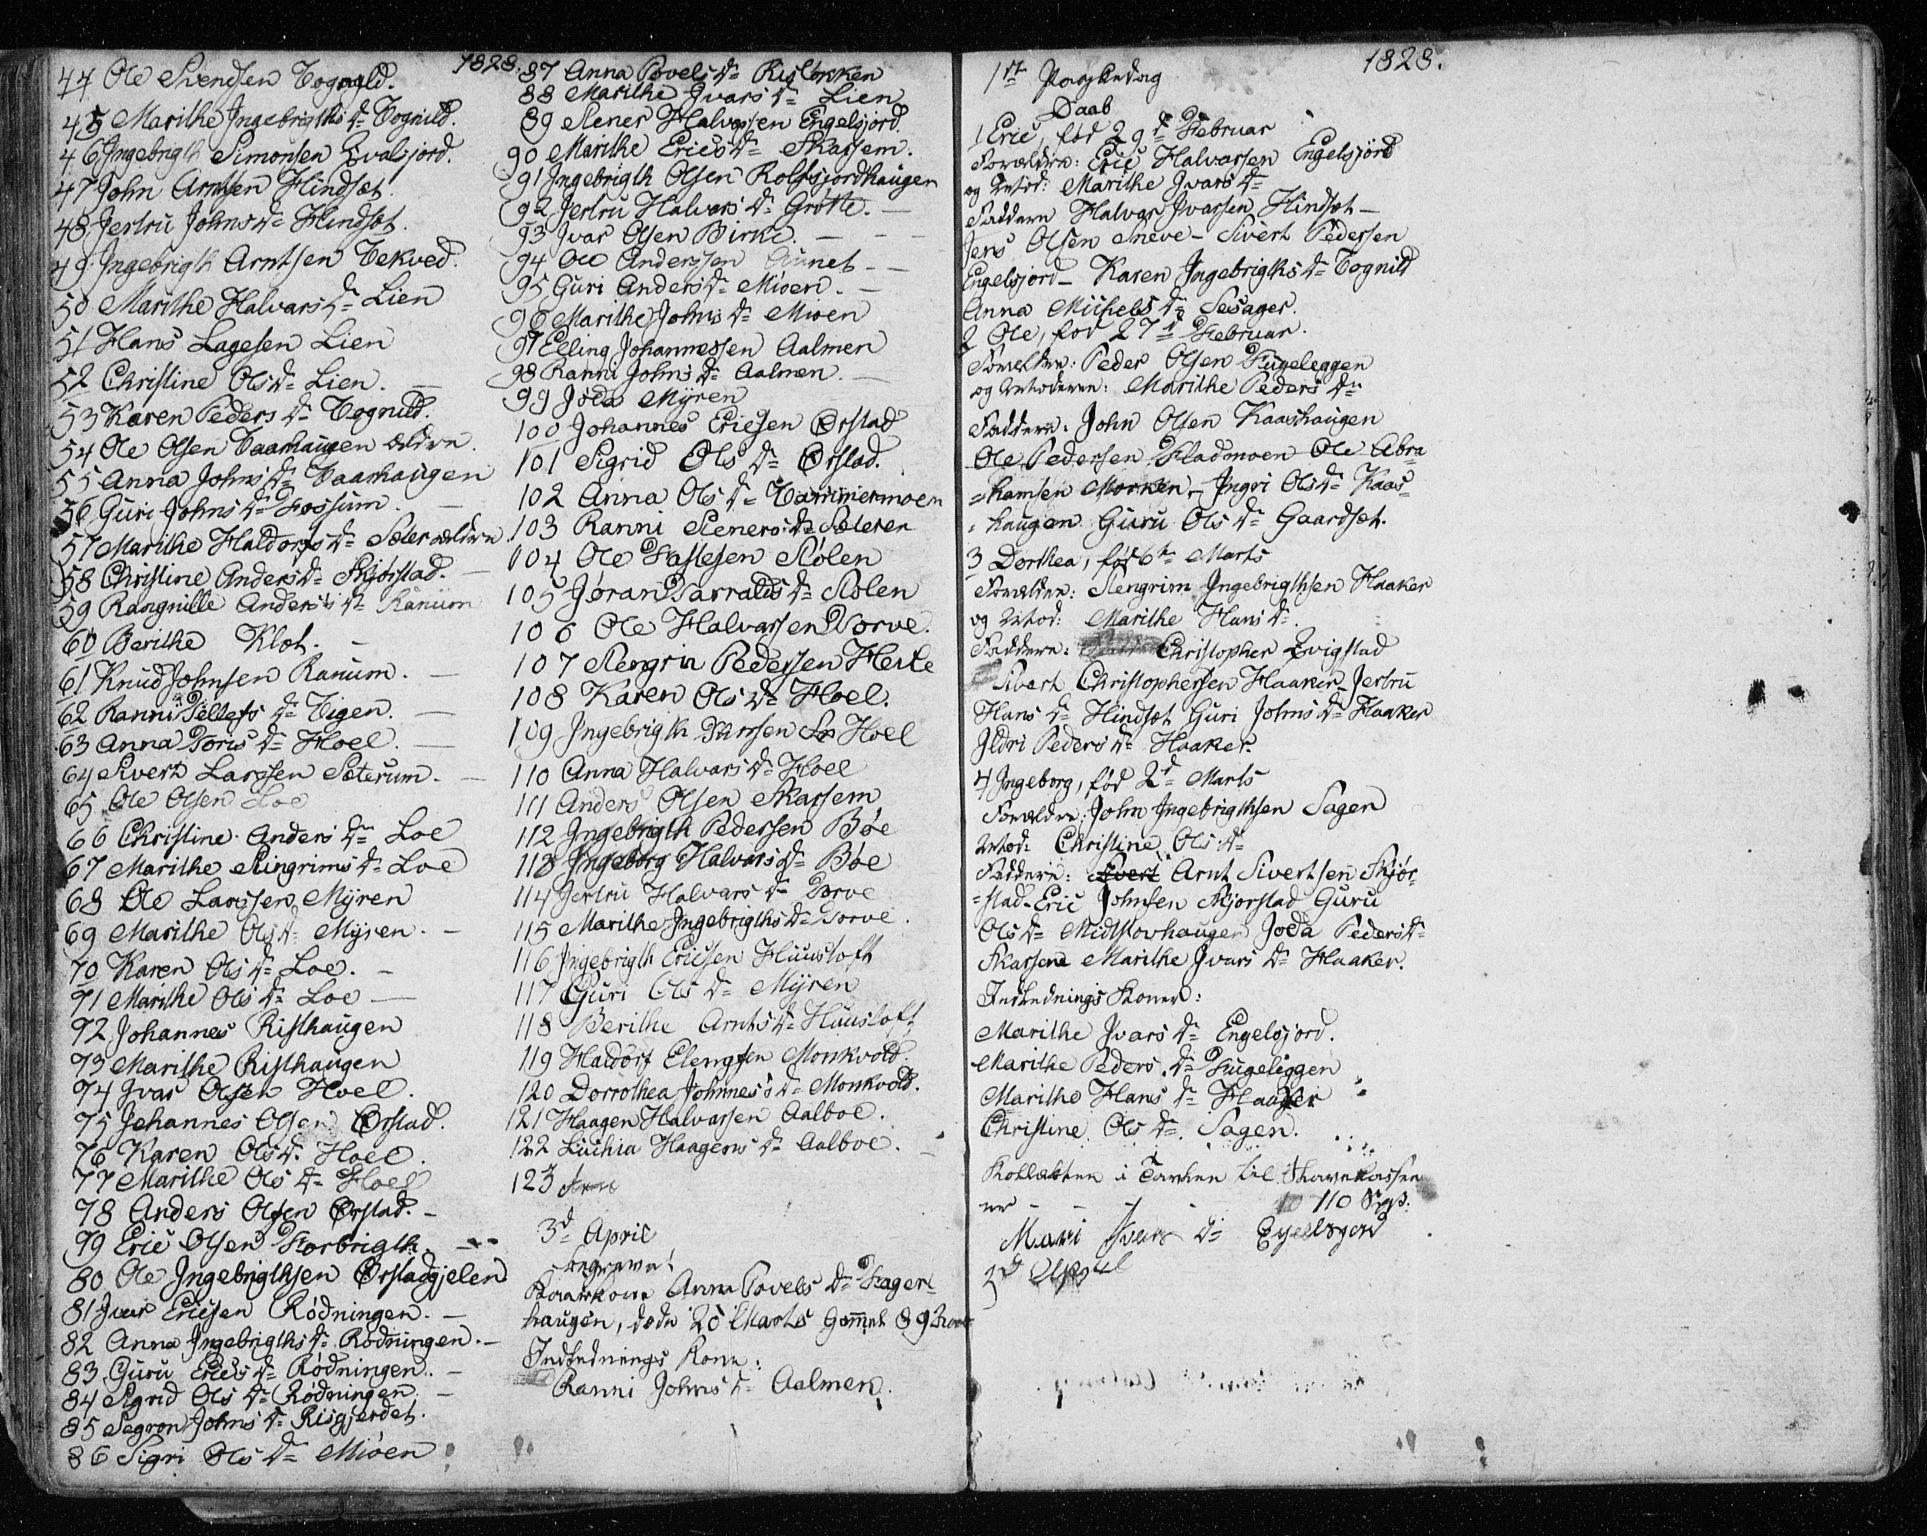 1828.
44 Ole Svendsen Tognild.
45 Marithe Ingebrigths Dr Tognild.
46 Ingebrigth Simonsen Qvalsjord.
47 John Arntsen Hindsæt.
48 Jertru Johns Dr Hindsæt.
49 Ingebrigth Arntsen Tekved.
50 Marithe Halvars Dr Lien
51 Hans Lagesen Lien
52 Christine Ols Dr Lien.
53 Karen Peders Dr Tognild.
54 Ole Olsen Vaarhaugen ældre
55 Anna Johns Dr Vaarhaugen
56 Guri Johns Dr Fossum.
57 Marithe Haldors Dr Sæter ældre
58 Christine Anders Dr Skjørstad.
59 Rangnille Anders Dr Ranum
60 Berithe Klæt.
61 Knud Johnsen Ranum.
62 Ranni Dr Vigen.
63 Anna Tores Dr Hoel.
64 Sivert Larssen Sæterum.
65 Ole Olsen Loe
66 Christine Anders Dr Loe
67 Marithe Stingrims Dr Loe
68 Ole Larssen Mÿren
69 Marithe Ols Dr Mÿren.
70 Karen Ols Dr Loe.
71 Marithe Ols Dr Loe
72 Johannes Risthaugen
73 Marithe Risthaugen
74 Ivar Olsen Hoel.
75 Johannes Olsen Ørstad.
76 Karen Ols Dr Hoel.
77 Marithe Ols Dr Hoel
78 Anders Olsen Ørstad.
79 Eric Olsen Forbrigth.
80 Ole Ingebrigthsen Ørstadgjelen
81 Ivar Ericsen Rødningen.
82 Anna Ingebrigths Dr Rødningen.
83 Guru Erics Dr Rødningen.
84 Sigrid Ols Dr Rødningen
85 Segron Johns Dr Risgjerdet.
86 Sigri Ols Dr Mioen
87 Anna Povels Dr Risløkken
88 Marithe Ivars Dr Lien
89 Stener Halvorsen Engelsjord.
90 Marithe Erics Dr Skarsem.
91 Ingebrigth Olsen Rolfsjordhaugen
92 Jertru Halvars Dr Grøtte.
93 Ivar Olsen Birke.
94 Ole Anderssen Aunet
95 Guri Anders Dr Mioen.
96 Marithe Johns Dr Mioen
97 Elling Johannessen Aalmen
98 Ranni Johns Dr Aalmen.
99 Joda Mÿren
100 Johannes Ericsen Ørstad
101 Sigrid Ols Dr Ørstad.
102 Anna Ols Dr Tømmermoen
103 Ranni Steners Dr Sæteren
104 Ole Taslesen Stølen
105 Jøran Tarralds Dr Stølen
106 Ole Halvarsen Torve.
107 Stengrin Pedersen Herte
108 Karen Ols Dr Hoel.
109 Ingebrigth Hoel
110 Anna Halvars Dr Hoel
111 Anders Olsen Skarsem
112 Ingebrigth Pedersen Bøe
113 Ingeborg Halvars Dr Bøe
114 Jertru Halvars Dr Torve
115 Marithe Ingebrigths Dr Torve.
116 Ingebrigth Ericsen Huusloft
117 Guri Ols Dr Mÿren
118 Berithe Arnts Dr Huusloft
119 Haldorf Elengsen Monkvold.
120 Dorothea Johnes Dr Monkvold.
121 Haagen Halvarsen Aalboe.
122 Luchia Haagens Dr Aalboe.
123
3d April
begravet
Kaarkone Anna Povels Dr Hager-
haugen, døde 28 Marts Gammel 89
Indlednings Kone:
Ranni Johns Dr Aalmen.
1828.
1ste Paaskedag
Daab
1 Eric, fød 29d Februar
Forældre: Eric Halvarsen Engelsjord
og Mod: Marithe Ivars Dr
Faddere Halvar Ivarsen Hindsæt
Jens Olsen Sneve - Sivert Pedersen
Engelsjord - Karen Ingebrigths Dr Tognild
Anna Michels Dr Sesager.
2 Ole, fød 27d Februar.
Forældre: Peder Olsen Fugeleggen
og Moderen: Marithe Peders Dr
Faddere: John Olsen Kaashaugen
Ole Pedersen Fladmoen Ole Abra
=hamsen Morken - Ingri Ols Dr Kaas=
=haugen Guru Ols Dr Gaardsæt.
3 Dorthea, fød 6te Marts
Forældre: Stengrim Ingebrigthsen Haaker
og Mod: Marithe Hans Dr.
Faddere: Christopher Qvigstad
Sivert Christophersen Haaker - Jertru
Hans Dr Hindsæt Guri Johns Dr Haaker
Ildri Peders Dr Haaker.
4 Ingeborg, fød 2d Marts
Forældre: John Ingebrigthsen Sagen
Mod: Christine Ols Dr
Faddere: Sivert Arnt Sivertsen Skjør-
=stad - Eric Johnsen Skjorstad Guru
Ols Dr Midtskovhaugen Joda Peders Dr
Skarsem Marithe Ivars Dr Haaker.
Indlednings Koner:
Marithe Ivars Dr Engelsjord.
Marithe Peders Dr Fugeleggen
Marithe Hans Dr Haaker
Christine Ols Dr Sagen.
Kollekten i Tavlen til Skovekassen
er - - - 110
Mari Ivars Dr Egellsgord
3d April